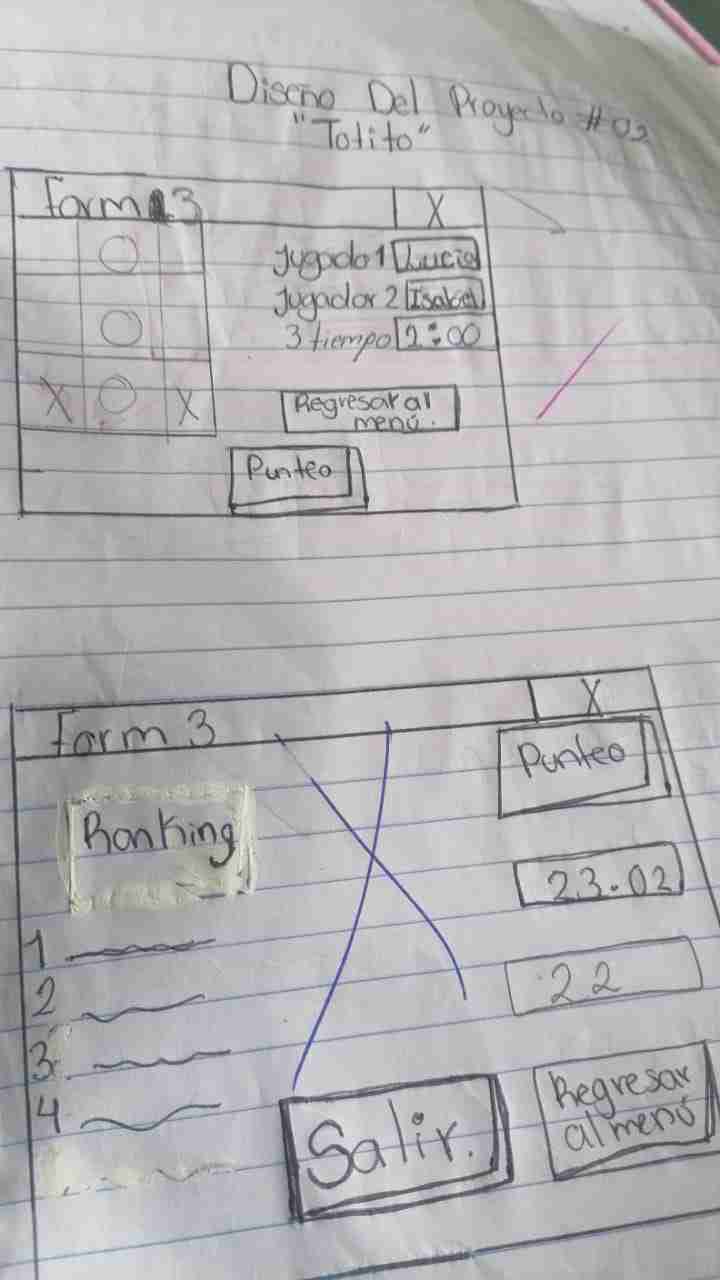 Diseño Del Proyecto #02
"Totito"
Form 3
X
Jugado 1 Lucia
Jugador 2 Isabel
3 tiempo 2:00
O
O
X O X
Regresar al
menú.
Punteo
Form 3
X
Punteo
Ranking
23.02
1
2
22
3
4
Regresar
al menú
Salir.